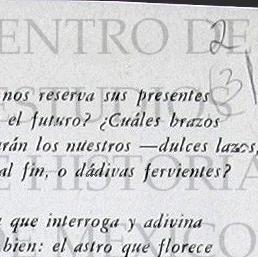 2
(3)
nos reserva sus presentes
el futuro? ¿Cuáles brazos
rán los nuestros —dulces lazos,
al fin, o dádivas fervientes?
que interroga y adivina
bien: el astro que florece